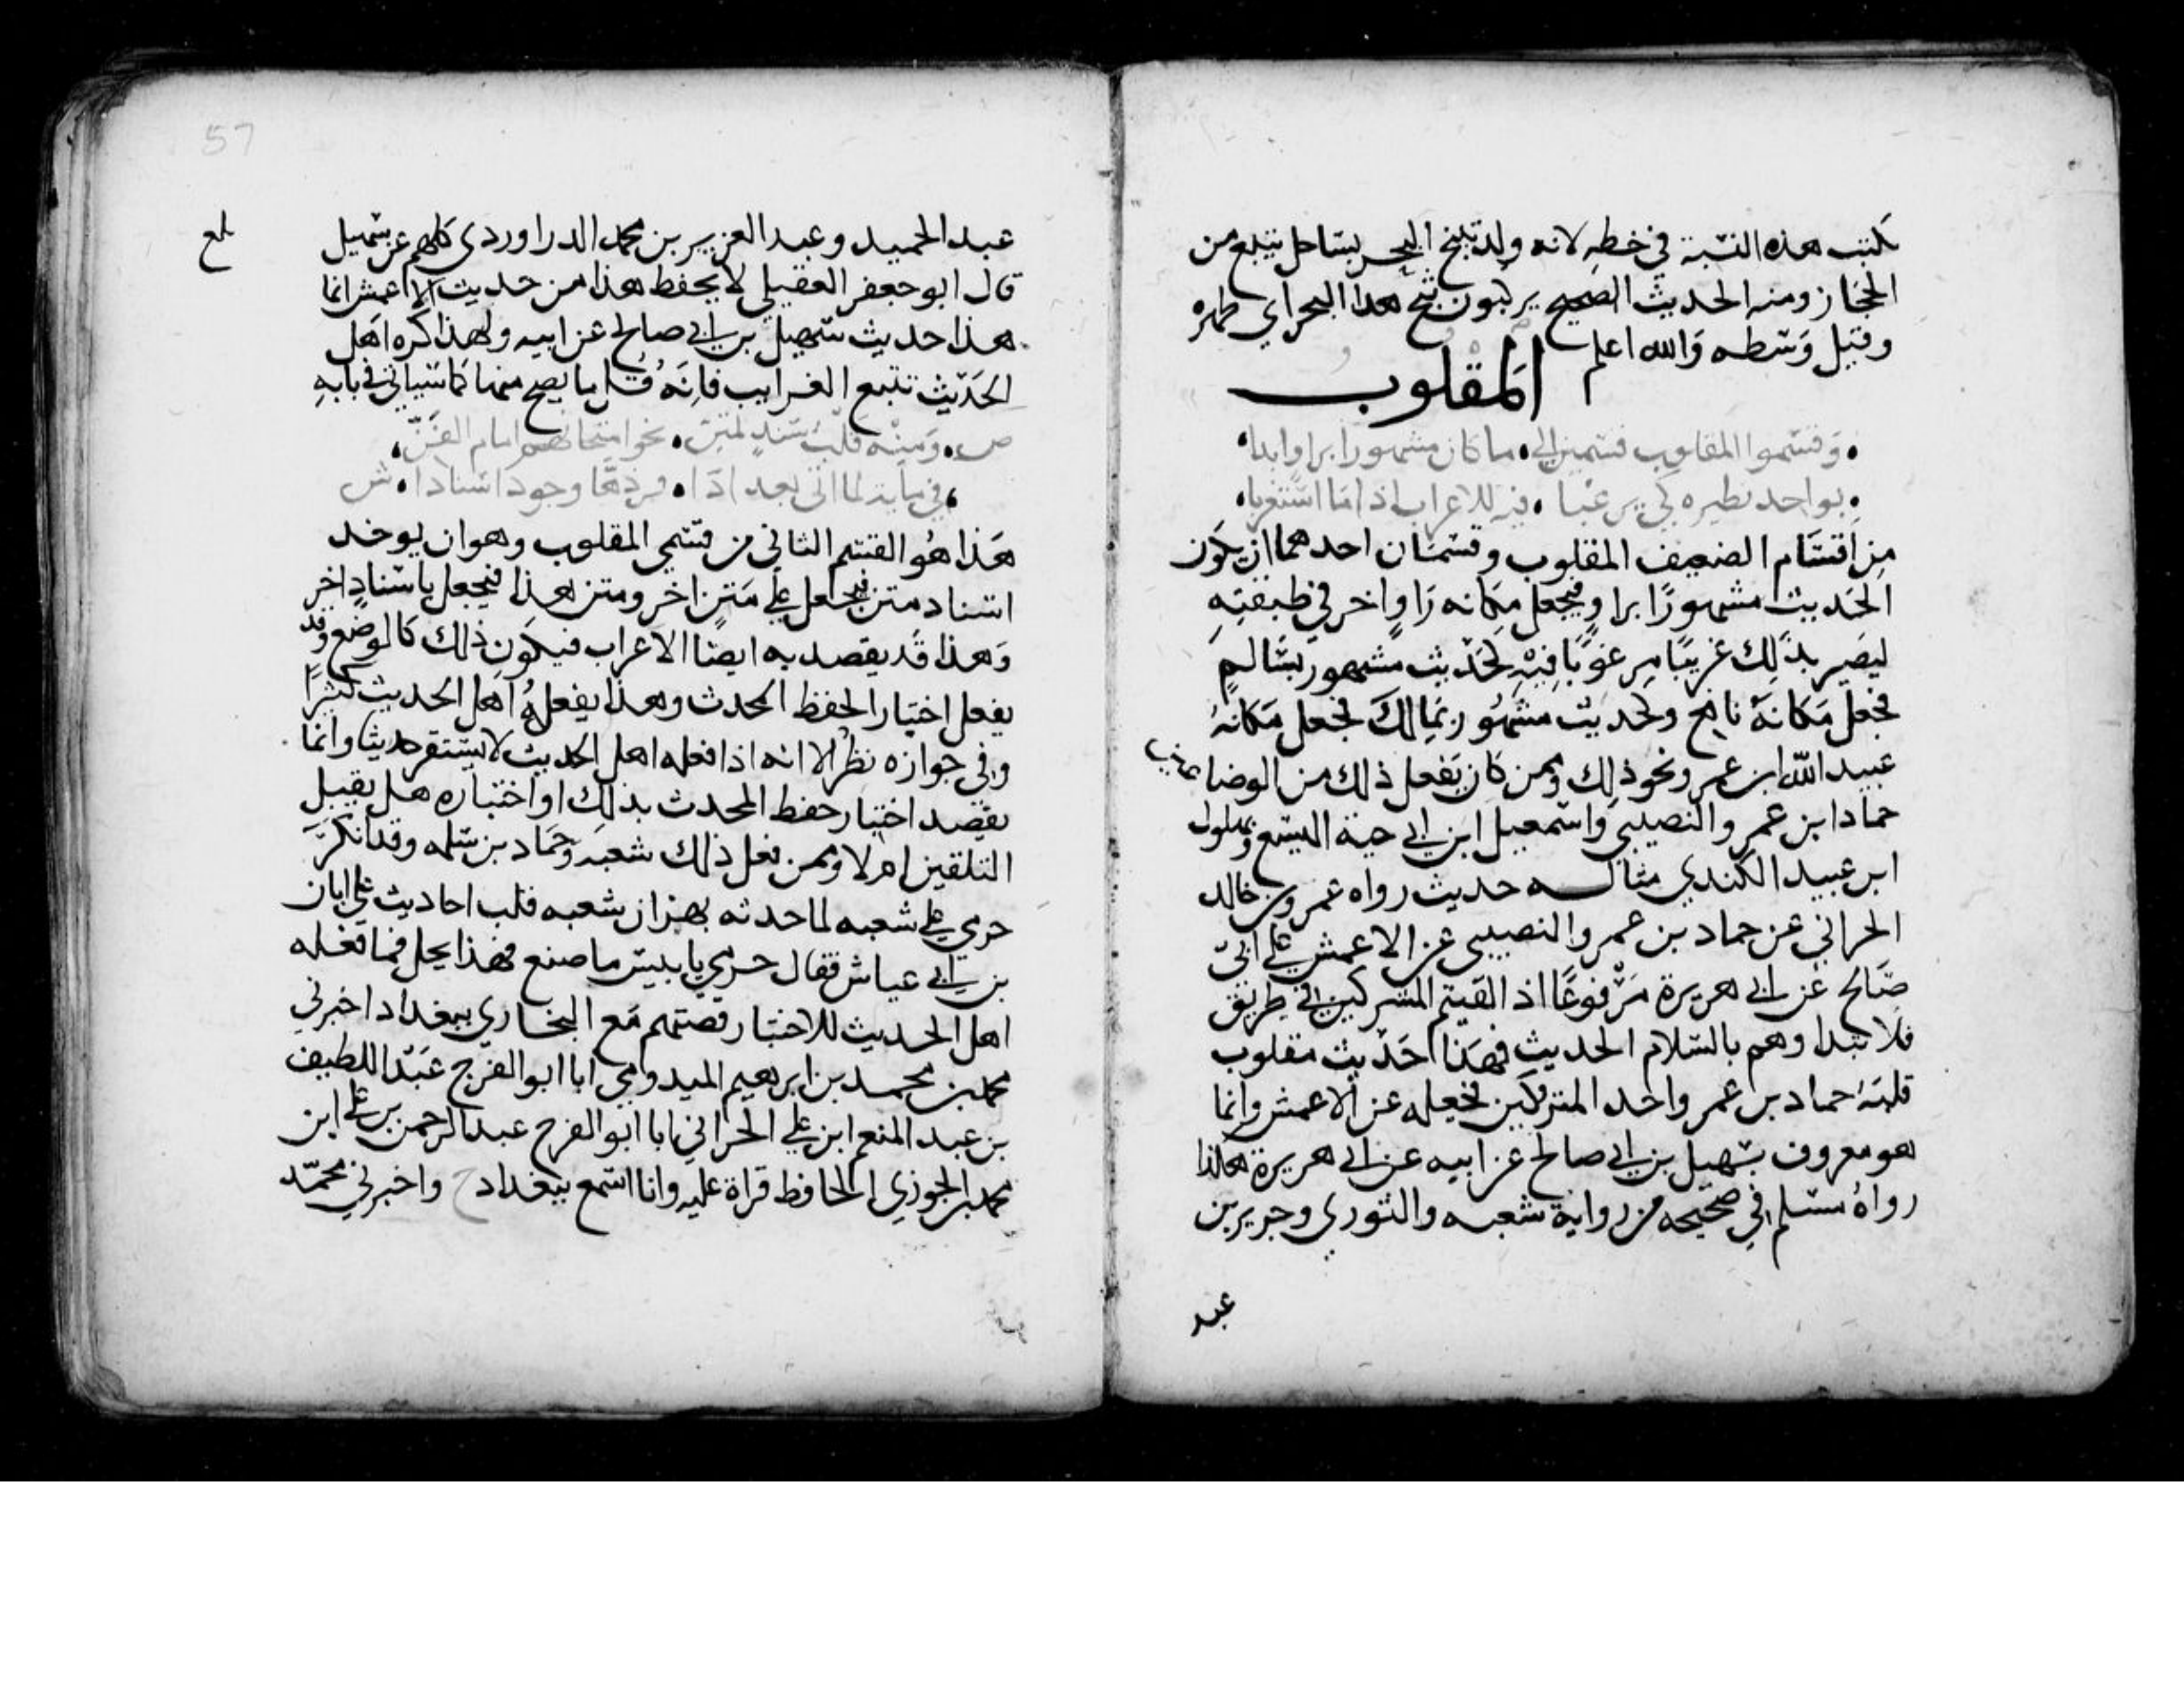 يكتب هذه النسبة في خطه لانه ولد بثبج البحر بساحل ينبع من
الحجاز ومنه الحديث الصحيح يركبون ثبج هذا البحر اي ظهره
وقيل وَسَطه وَالله اعلم
اَلمقلوب
وَقسّموا المقلوب قسمين الي ما كان مشهورًا براوابدلا
بواحد نظيره كي يرغبا فيه للاغراب اذا مَا استُغربا
من اَقسَام الضعيف المقلوب وقسمَان احدهما ان يكوَن
الحَديث مشهورًا براوٍ فيجعل مكانه رَاوٍ اخر في طبقتِهِ
ليَصير بذلِك غريبًا مرغوبًا فيْهِ كَحَدِيث مشهور بسَالمٍ
فجعل مَكانَهُ نافع وكحديث مشهُور بمَالك فجعل مَكانهُ
عبيد الله ابن عمر ونحو ذلك وممن كان يَفعل ذلك من الوضاعين
حماد ابن عمرو النصيبي وَاسمعيل ابن ابي حية اليسع وبهلول
ابن عبيد الكندي مثاله حديث رواه عمرو بن خالد
الحراني عن حماد بن عمرو النصيبي عن الاعمش علي ابي
صَالح عن ابي هريرة مَرْفوعًا اذا لقيتم المشركين في طريق
فلا تبداوهم بالسّلام الحديث فهَذا حَدْيث مقلوب
قلبَهُ حماد بن عمرو احد المتروكين فجعله عن الاعمش وانما
هو معروف بسُهيل بن ابي صالح عن ابيه عن ابي هريرة هكذا
رواهُ مسْلم في صَحيحه من رواية شعبه والثوري وجرير بن
عبد
57
عبد الحميد وعبد العزيز بن محمد الدراوردي كلهم عن سهيل
بلغ
قال ابو جعفر العقيلي لا يحفظ هذا من حديث الاعمش انما
هذا حديث سهيل بن ابي صالح عن ابيه ولهذا كره اَهل
الحَدْيث تتبع الغرايب فاِنهُ قل ما يصح منها كما سَياتي في بابهِ
ص وَمنْه قلبُ سَندٍ لمتن نحو امتحانهم امام الفَنّ
في مايةٍ لما اتي بغدادَا فردهَا وجود اسنادا ش
هَذا هُو القسم الثاني من قسمي المقلوب وهو ان يوخد
اسناد متن فيجعل علي مَتنٍ اخر ومتن هذا فيجعل باسْنادٍ اخر
وَهذا قد يقصد به ايضًا الاغراب فيكون ذلك كالوضع وقد
يفعل اختبارا لحفظ المحدث وهذا يفعلهُ اهل الحديث كثيرًا
وفي جوازه نظرٌ الا انه اذا فعله اهل الحديث لا يستقر حديثا وانما
يقصد اختبار حفظ المحدث بذلك او اختباره هل يقبل
التلقين ام لا وممن فعل ذلك شعبه وحَمّاد بن سلمه وقد انكرَ
حرمي علي شعبه لما حدثه بهز ان شعبه قلب احاديث علي ابان
بن ابي عياش فقال حرمي يا بيس ما صنع فهذا يحل فمما فعله
اهل الحديث للاختبار قصتهم مَع البخاري ببغداد اخبرني
محمد بن محمد بن ابرهيم الميدومي ابا ابو الفرج عَبْد اللطيف
بن عبد المنعم ابن علي الحراني ابا ابو الفرج عبد الرحمن بن علي ابن
محمد بن الجوزي الحافظ قراة عليه وانا اسمع ببغداد ح واخبرني محمّد